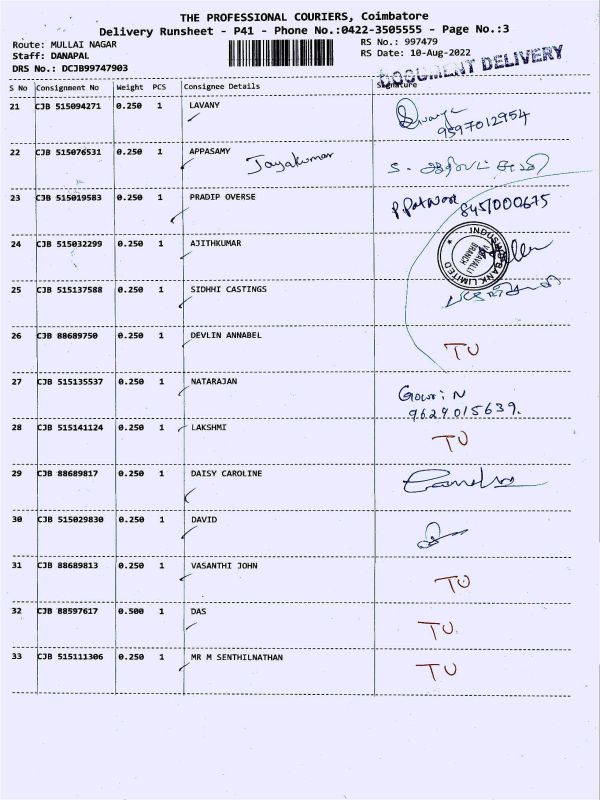 THE PROFESSIONAL COURIERS, Coimbatore
Delivery Runsheet - P41 - Phone No.:0422-3505555 - Page No.:3
Route: MULLAI NAGAR RS No.: 997479
Staff: DANAPAL RS Date: 10-Aug-2022
DRS No.: DCJB99747903 DOCUMENT DELIVERY
S No Consignment No Weight PCS Consignee Details Signature
21 CJB 515094271 0.250 1 LAVANY
9597012954
22 CJB 515076531 0.250 1 APPASAMY Jayakumar
23 CJB 515019583 0.250 1 PRADIP OVERSE 8451000675
24 CJB 515032299 0.250 1 AJITHKUMAR
INDUSIND BANK LIMITED
VADAVALLI
BRANCH
25 CJB 515137588 0.250 1 SIDHHI CASTINGS
26 CJB 88689750 0.250 1 DEVLIN ANNABEL TU
27 CJB 515135537 0.250 1 NATARAJAN Gowri N
9624015639.
28 CJB 515141124 0.250 1 LAKSHMI TU
29 CJB 88689817 0.250 1 DAISY CAROLINE
30 CJB 515029830 0.250 1 DAVID
31 CJB 88689813 0.250 1 VASANTHI JOHN TU
32 CJB 88597617 0.500 1 DAS TU.
33 CJB 515111306 0.250 1 MR M SENTHILNATHAN TU